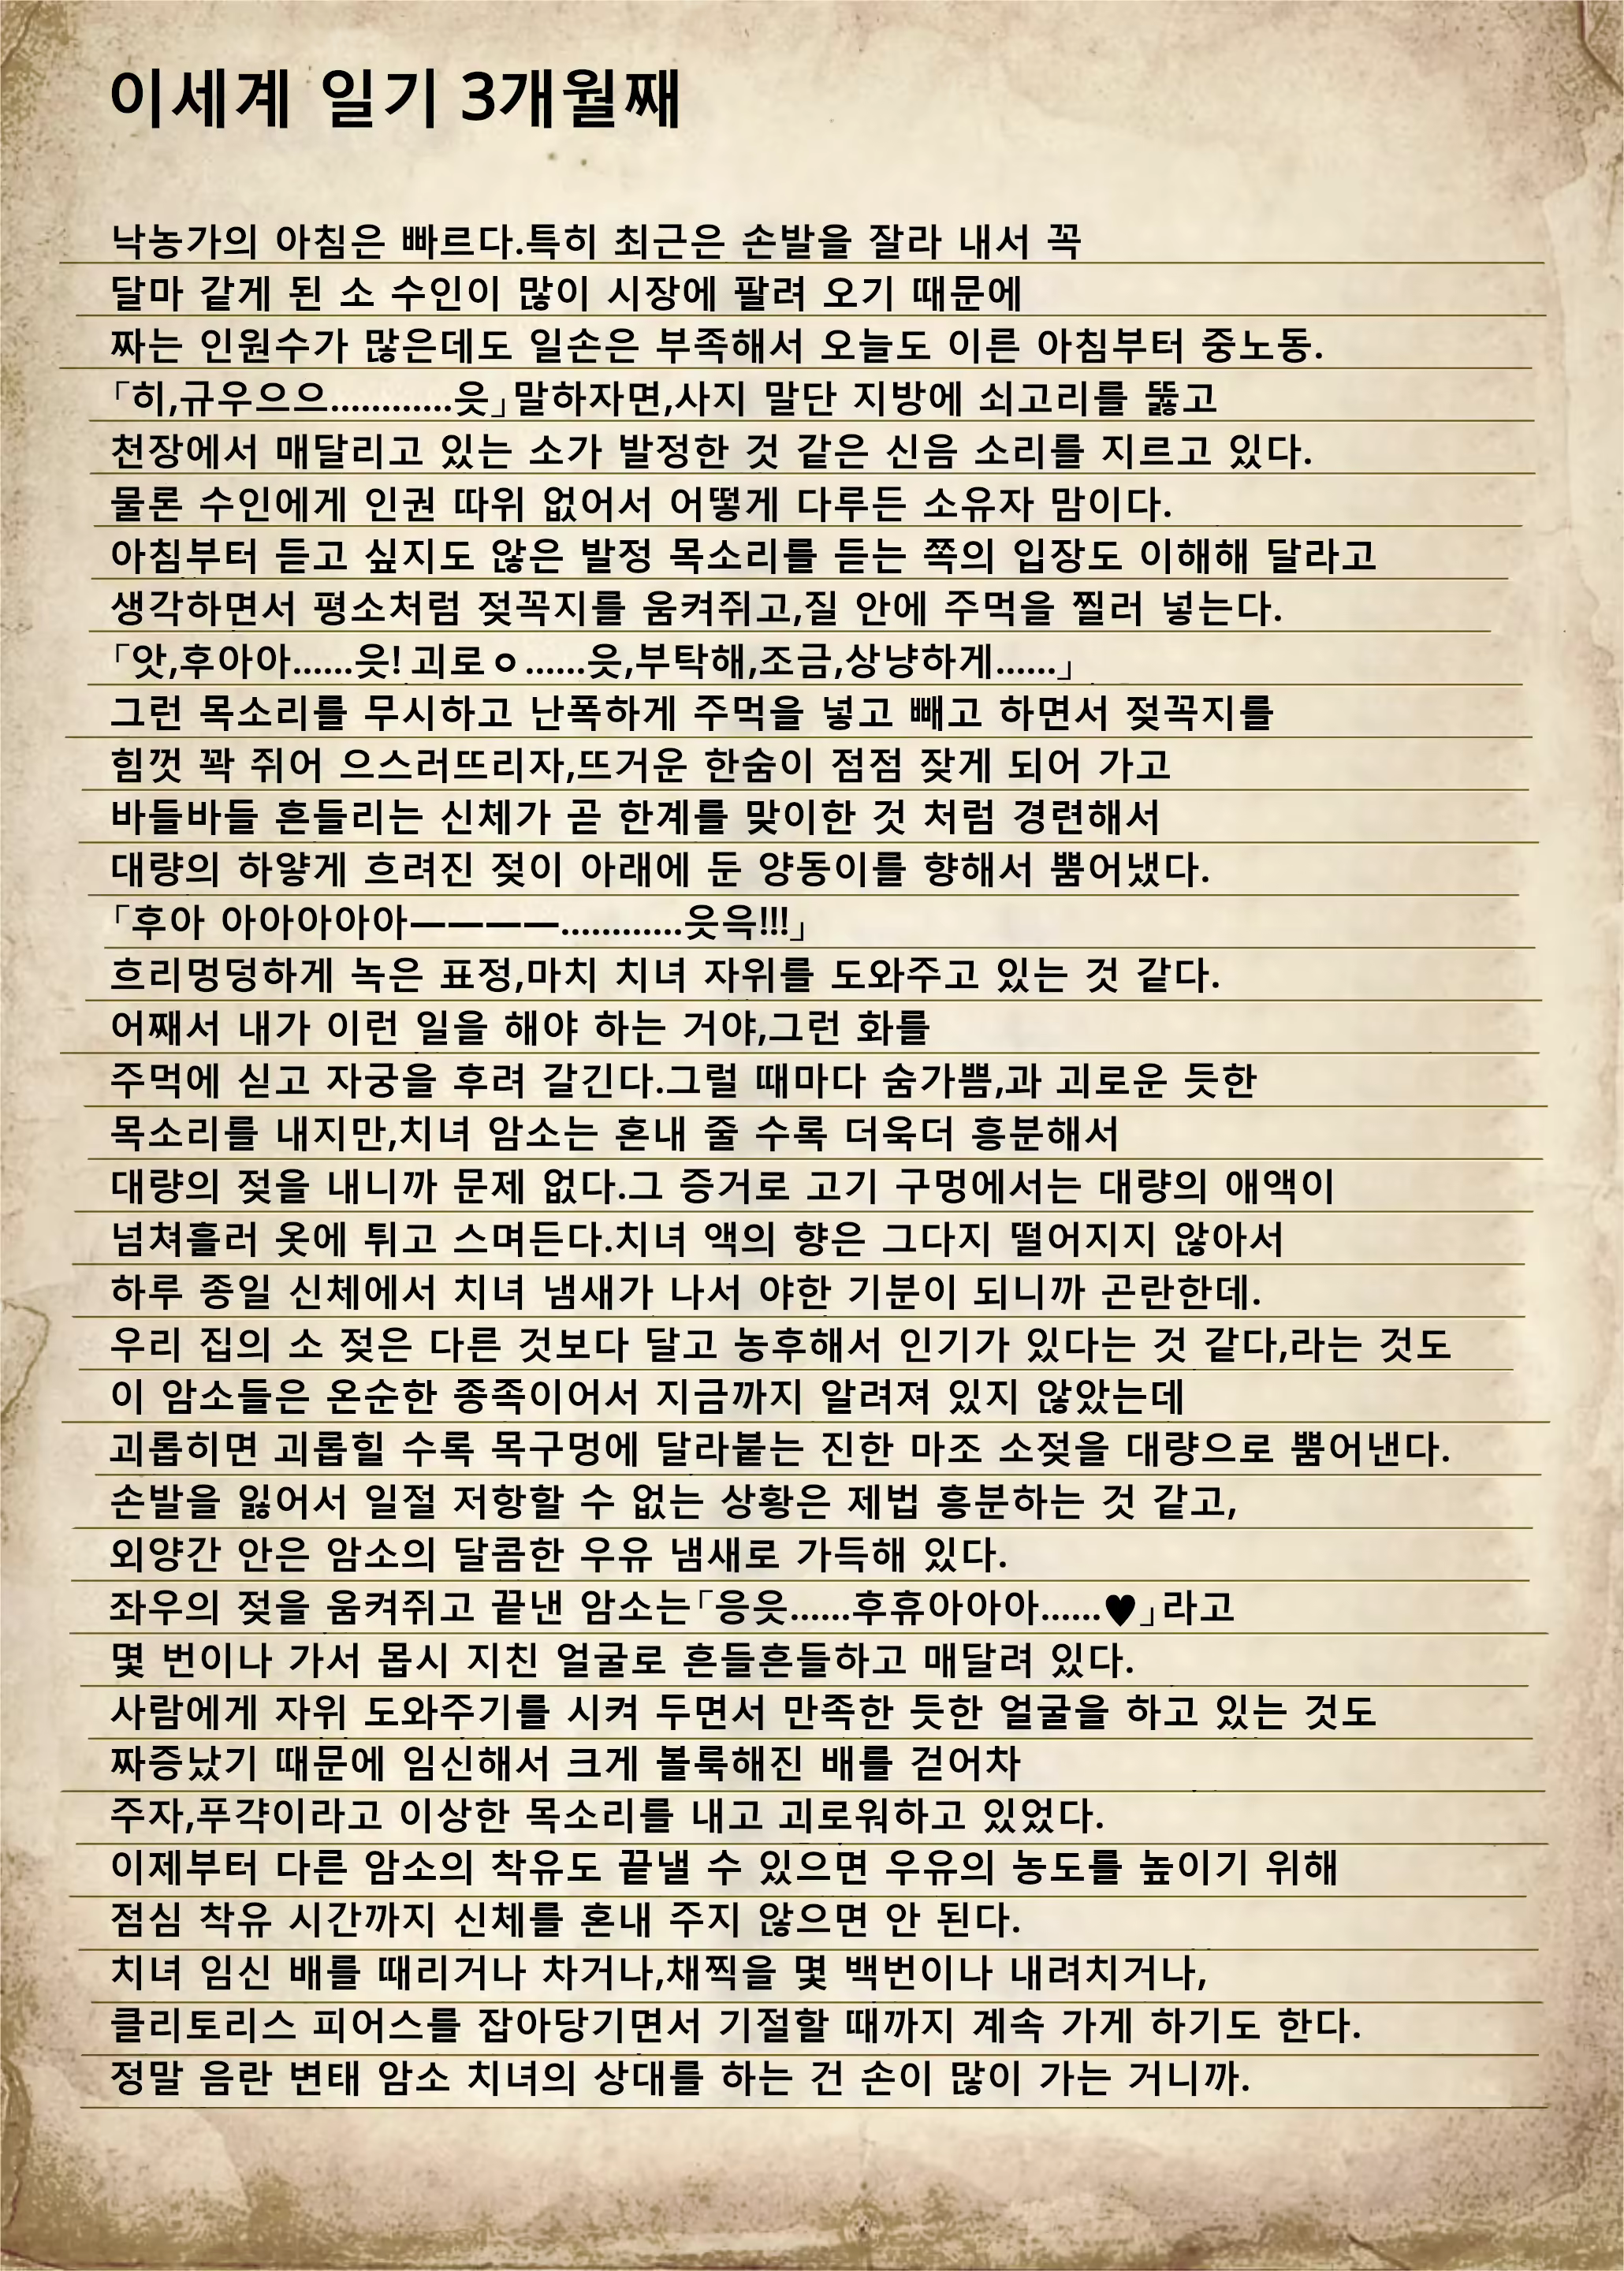 이세계 일기 3개월째
낙농가의 아침은 빠르다.특히 최근은 손발을 잘라 내서 꼭
달마 같게 된 소 수인이 많이 시장에 팔려 오기 때문에
짜는 인원수가 많은데도 일손은 부족해서 오늘도 이른 아침부터 중노동.
「히,규우으으............읏」말하자면,사지 말단 지방에 쇠고리를 뚫고
천장에서 매달리고 있는 소가 발정한 것 같은 신음 소리를 지르고 있다.
물론 수인에게 인권 따위 없어서 어떻게 다루든 소유자 맘이다.
아침부터 듣고 싶지도 않은 발정 목소리를 듣는 쪽의 입장도 이해해 달라고
생각하면서 평소처럼 젖꼭지를 움켜쥐고,질 안에 주먹을 찔러 넣는다.
「앗,후아아......읏! 괴로ㅇ......읏,부탁해,조금,상냥하게......」
그런 목소리를 무시하고 난폭하게 주먹을 넣고 빼고 하면서 젖꼭지를
힘껏 꽉 쥐어 으스러뜨리자,뜨거운 한숨이 점점 잦게 되어 가고
바들바들 흔들리는 신체가 곧 한계를 맞이한 것 처럼 경련해서
대량의 하얗게 흐려진 젖이 아래에 둔 양동이를 향해서 뿜어냈다.
「후아 아아아아아————............읏윽!!!」
흐리멍덩하게 녹은 표정,마치 치녀 자위를 도와주고 있는 것 같다.
어째서 내가 이런 일을 해야 하는 거야,그런 화를
주먹에 싣고 자궁을 후려 갈긴다.그럴 때마다 숨가쁨,과 괴로운 듯한
목소리를 내지만,치녀 암소는 혼내 줄 수록 더욱더 흥분해서
대량의 젖을 내니까 문제 없다.그 증거로 고기 구멍에서는 대량의 애액이
넘쳐흘러 옷에 튀고 스며든다.치녀 액의 향은 그다지 떨어지지 않아서
하루 종일 신체에서 치녀 냄새가 나서 야한 기분이 되니까 곤란한데.
우리 집의 소 젖은 다른 것보다 달고 농후해서 인기가 있다는 것 같다,라는 것도
이 암소들은 온순한 종족이어서 지금까지 알려져 있지 않았는데
괴롭히면 괴롭힐 수록 목구멍에 달라붙는 진한 마조 소젖을 대량으로 뿜어낸다.
손발을 잃어서 일절 저항할 수 없는 상황은 제법 흥분하는 것 같고,
외양간 안은 암소의 달콤한 우유 냄새로 가득해 있다.
좌우의 젖을 움켜쥐고 끝낸 암소는「응읏......후휴아아아......♥」라고
몇 번이나 가서 몹시 지친 얼굴로 흔들흔들하고 매달려 있다.
사람에게 자위 도와주기를 시켜 두면서 만족한 듯한 얼굴을 하고 있는 것도
짜증났기 때문에 임신해서 크게 볼룩해진 배를 걷어차
주자,푸갹이라고 이상한 목소리를 내고 괴로워하고 있었다.
이제부터 다른 암소의 착유도 끝낼 수 있으면 우유의 농도를 높이기 위해
점심 착유 시간까지 신체를 혼내 주지 않으면 안 된다.
치녀 임신 배를 때리거나 차거나,채찍을 몇 백번이나 내려치거나,
클리토리스 피어스를 잡아당기면서 기절할 때까지 계속 가게 하기도 한다.
정말 음란 변태 암소 치녀의 상대를 하는 건 손이 많이 가는 거니까.